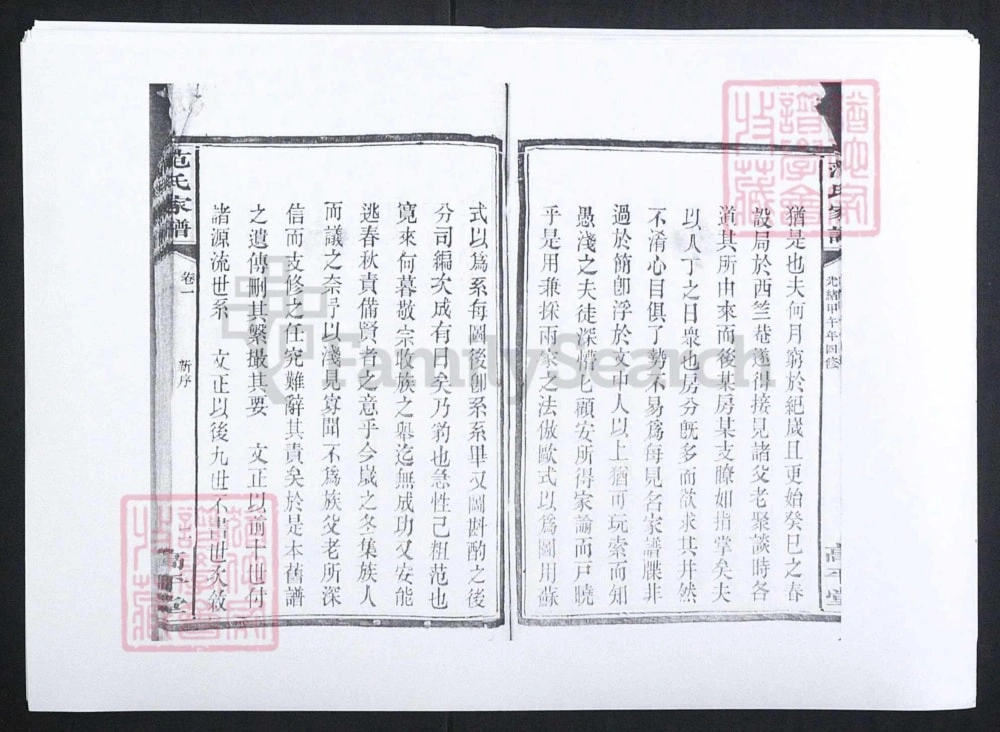 范氏家譜
光緒甲午年四修
高平堂
猶是也夫何月窮於紀歲且更始癸巳之春
設局於西竺菴遂得接見諸父老聚談時各
道其所由來而後某房某支瞭如指掌矣夫
以人丁之日衆也房分旣多而欲求其井然
不淆心目俱了勢不易爲每見名家譜牒非
過於簡卽浮於文中人以上猶可玩索而知
愚淺之夫徒深懵匕顧安所得家諭而戶曉
乎是用兼採兩家之法倣歐式以爲圖用蘇
式以爲系每圖後卽系系畢又圖斟酌之後
分司編次成有日矣乃豹也急性己粗范也
寬來何暮敬宗收族之舉迄無成功又安能
逃春秋責備賢者之意乎今歲之冬集族人
而議之奈予以淺見寡聞不爲族父老所深
信而支修之任究難辭其責矣於是本舊譜
之遺傳刪其繁撮其要 文正以前十世付
諸源流世系 文正以後九世不書世次敘
范氏家譜
卷一
新序
高平堂
FamilySearch